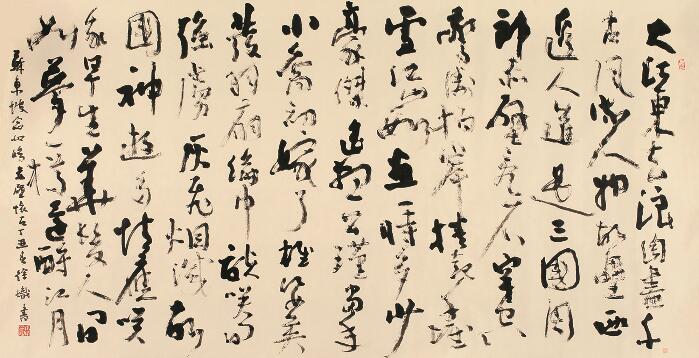 大江東去浪淘盡千
古風流人物故壘西
邊人道是三國周
郎赤壁亂石穿空
驚濤拍岸捲起千堆
雪江山如畫一時多少
豪傑遙想公瑾當年
小喬初嫁了雄姿英
發羽扇綸巾談笑間
強虜灰飛烟滅故
國神遊多情應笑
我早生華髮人間
如夢一尊還酹江月
蘇東坡念奴嬌赤壁懷古丁丑徐書